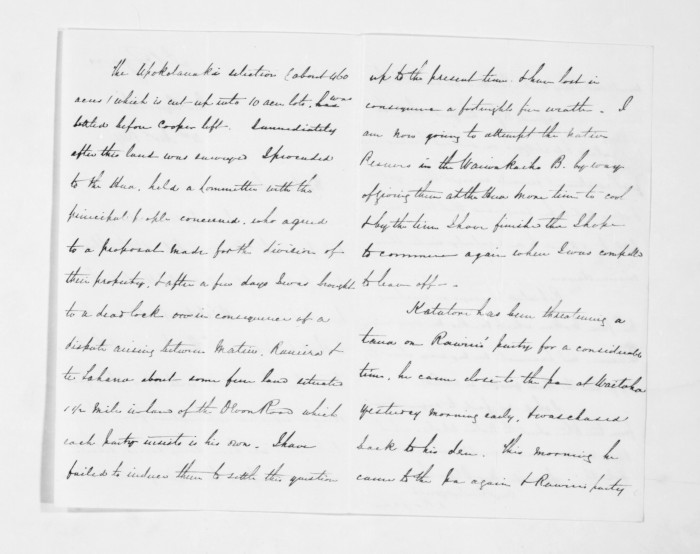 The Upokotauaki selection (about 460
acres) which is cut up into 10 acre lots, has was
settled before Cooper left. Immediately
after this land was surveyed I proceeded
to the Hua, held a Committee with the
principal people concerned, who agreed
to a proposal made for the division of
their property, & after a few days I was brought
to a dead lock now in consequence of a
dispute arising between Matiu, Raniera &
te Tahana about some fern land situate
1½ mile inland of the Devon Road which
each party insists is his own. I have
failed to induce them to settle this question
up to the present time & have lost in
consequence a fortnights fine weather. I
am now going to attempt the Native
Reserves in the Waiwakaiho B. by way
of giving them at the Hua more time to cool
& by the time I have finished these I hope
to commence again where I was compelled
to leave off.
Katatore has been threatening a
taua on Rawiri's party for a considerable
time, he came close to the pa at Waitaha
yesterday morning early, & was chased
back to his den. This morning he
came to the pa again & Rawiris party